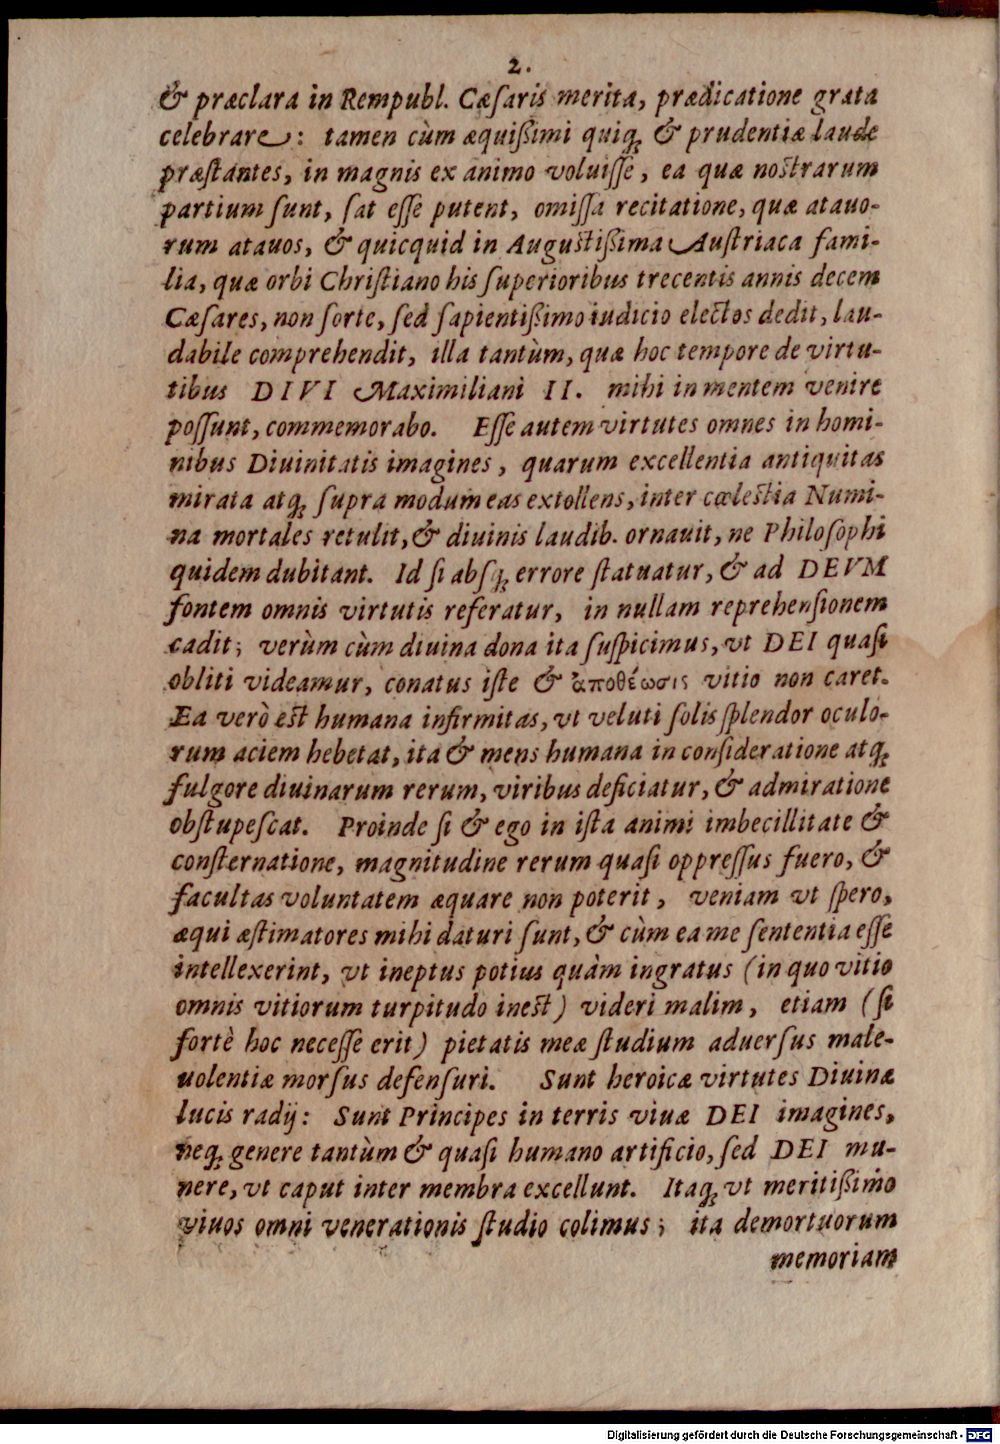 2.
& præclara in Rempubl. Cæſaris merita, prædicatione grata
celebrare: tamen cùm æquißimi quiq; & prudentiæ laude
præſtantes, in magnis ex animo voluiſſe, ea quæ noſtrarum
partium ſunt, ſat eſſe putent, omiſſa recitatione, quæ atauo-
rum atauos, & quicquid in Auguſtißima Auſtriaca fami-
lia, quæ orbi Chriſtiano his ſuperioribus trecentis annis decem
Cæſares, non ſorte, ſed ſapientißimo iudicio electos dedit, lau-
dabile comprehendit, illa tantùm, quæ hoc tempore de virtu-
tibus DIVI Maximiliani II. mihi in mentem venire
poſſunt, commemorabo. Eſſe autem virtutes omnes in homi-
nibus Diuinitatis imagines, quarum excellentia antiquitas
mirata atq; ſupra modum eas extollens, inter cœleſtia Numi-
na mortales retulit, & diuinis laudib. ornauit, ne Philoſophi
quidem dubitant. Id ſi abſq; errore ſtatuatur, & ad DEVM
fontem omnis virtutis referatur, in nullam reprehenſionem
cadit; verùm cùm diuina dona ita ſuſpicimus, vt DEI quaſi
obliti videamur, conatus iſte & ἀποθέωσις vitio non caret.
Ea verò eſt humana infirmitas, vt veluti ſolis ſplendor oculo-
rum aciem hebetat, ita & mens humana in conſideratione atq;
fulgore diuinarum rerum, viribus deficiatur, & admiratione
obſtupeſcat. Proinde ſi & ego in iſta animi imbecillitate &
conſternatione, magnitudine rerum quaſi oppreſſus fuero, &
facultas voluntatem æquare non poterit, veniam vt ſpero,
æqui æſtimatores mihi daturi ſunt, & cùm ea me ſententia eſſe
intellexerint, vt ineptus potius quàm ingratus (in quo vitio
omnis vitiorum turpitudo ineſt) videri malim, etiam (ſi
fortè hoc neceſſe erit) pietatis meæ ſtudium aduerſus male-
uolentiæ morſus defenſuri. Sunt heroicæ virtutes Diuinæ
lucis radij: Sunt Principes in terris viuæ DEI imagines,
neq; genere tantùm & quaſi humano artificio, ſed DEI mu-
nere, vt caput inter membra excellunt. Itaq; vt meritißimò
viuos omni venerationis ſtudio colimus; ita demortuorum
memoriam
Digitalisierung gefördert durch die Deutsche Forschungsgemeinschaft - DFG